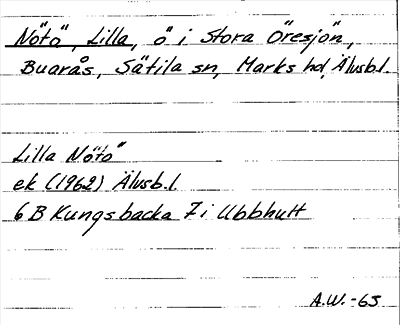 Nötö, Lilla, ö i Stora Öresjön,
Buarås, Sätila sn, Marks hd, Älvsb.l.
Lilla Nötö
ek (1962) Älvsb.l.
6 B Kungsbacka 7 i Ubbhult
A.W.-63